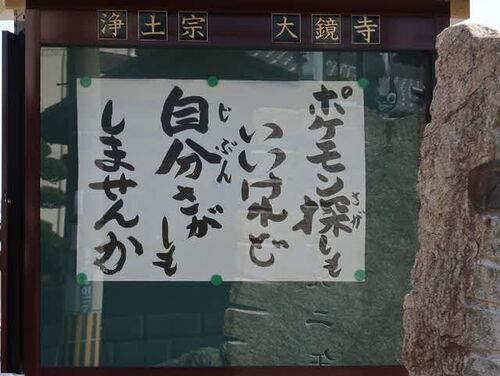 浄土宗 大鏡寺
ポケモン探しも
さが
いいけれど
自分さがしも
じぶん
しませんか